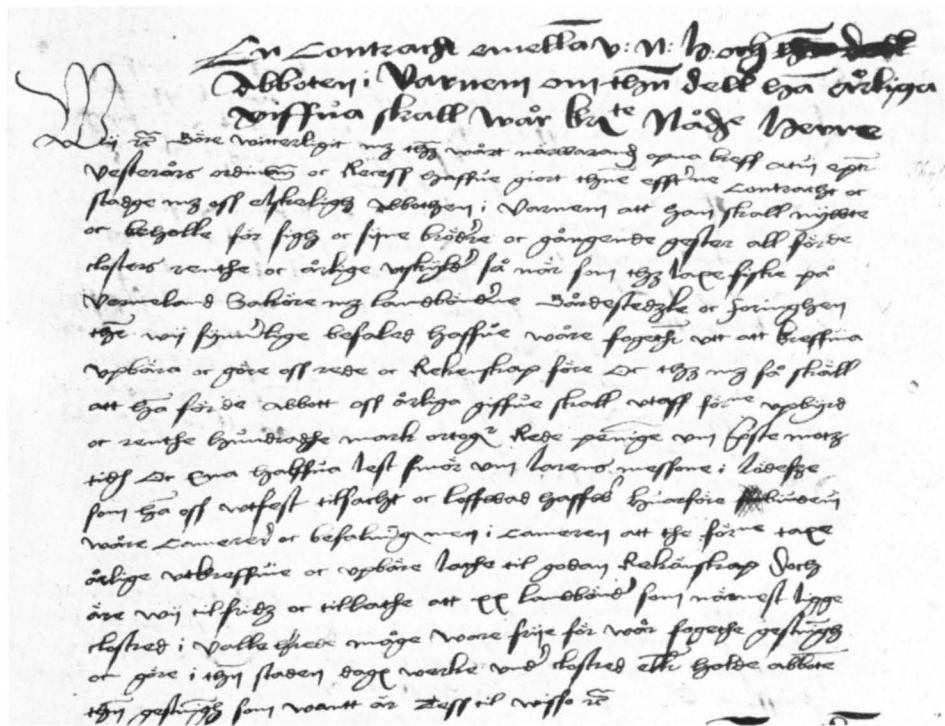 En Contracht emellā v: n: h: och
Abboten i Varnem om thn dell hā årliga
giffua skall wår kr te Nådge herre
Wij rc Göre witterligit mz thz wårt närwarandh opna breff atwi eptr
Vesterårs ordinan oc Recess haffue giort thenne efftrne Contracht oc
stadge mz oss elskeligh Abbothen i Varnem att han skall nywte
oc beholle för sigh oc sijne brödre oc gångende gester all förde
closters renthe oc årlige vtskyldr så när som thz laxe fiske på
Vermeland Saköre mz landböndrne Gårdestedzle oc Höringhen
the wij synnerlige befaled haffue wåre fogethr vtt att kreffuia
vpbära oc göre oss rede oc Rekenskap före Oc thz mz så skäll
att hā förde Abbott oss årliga giffue skall vtaff förne vpbyrd
oc renthe hundradhe mark ortogr Rede peninge vm Høste motz
tidh Oc Ena halffua lest smör vm larens messone i lödesze
som hā oss vtfest tilsacht oc loffwad haffwr Huarföre biudwn
wåre Camererr oc befalnings men i Cameren att the förne taxe
årlige vtkreffuie oc vpbäre lathe til godan Rekänskap Doch
äre wij tilfridz oc tillathe att xx landböndr som närmest ligge
clostred i Valle härede måge ware frije för wår fogethe gestningh
oc göre i thn staden dagx werke vndr clostred ellr holde abbote
thn gestningh som wantt är Tess til wisso rc